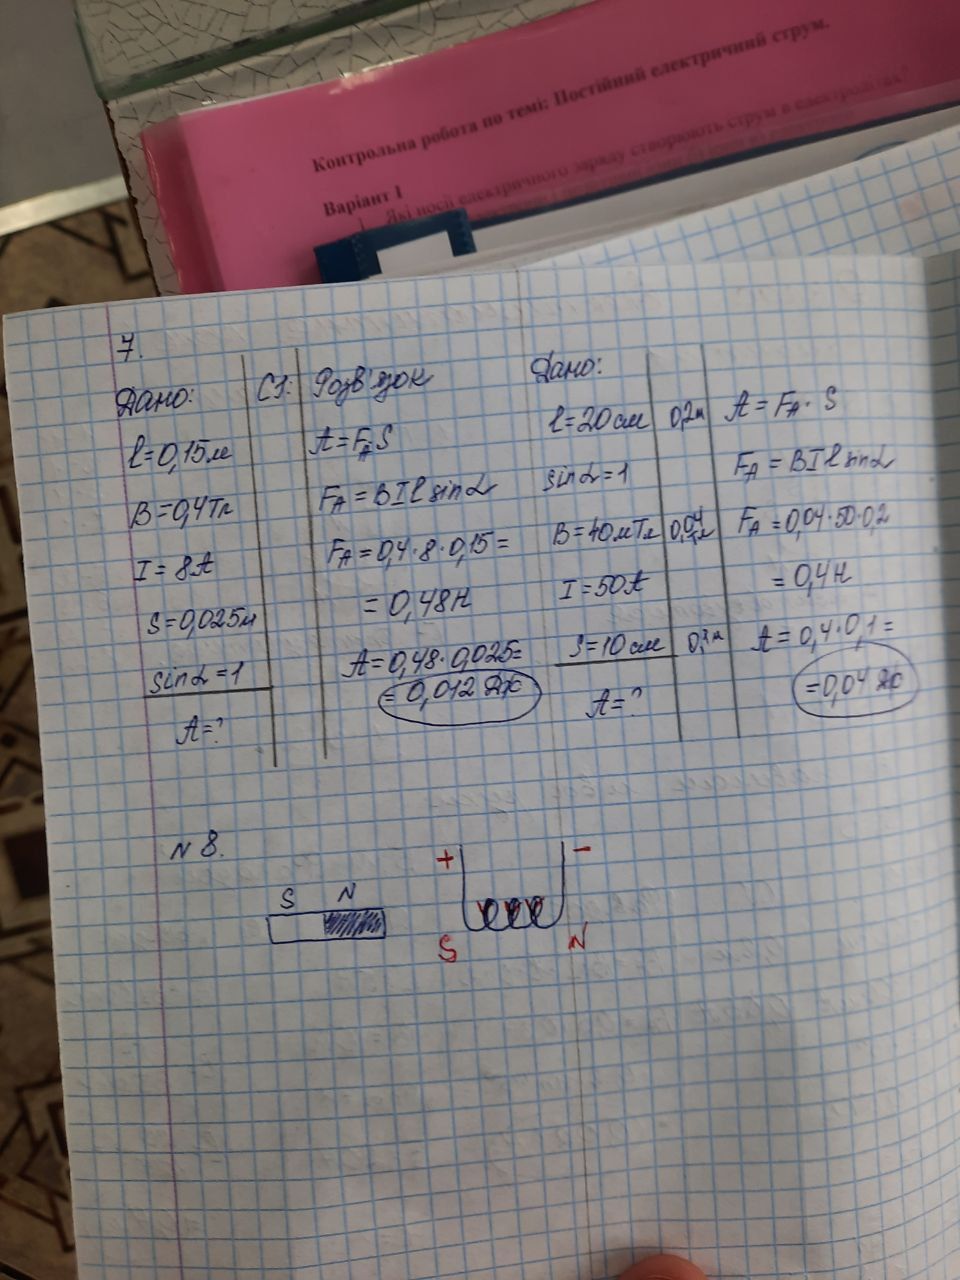 Контрольна робота по темі: Постійний електричний струм.
Варіант 1
Які носії електричного заряду створюють струм в електролітах?
7.
Дано:
l=0,15м
B=0,4Тл
I=8A
S=0,025м
sinα=1
A=?
СІ:
Розв'язок
A=FA·S
FA=BIl sinα
FA=0,4·8·0,15=
=0,48Н
A=0,48·0,025=
=0,012 Дж
Дано:
l=20см 0,2м
sinα=1
B=40мТл 0,04Тл
I=50A
S=10см
A=?
A=FA·S
FA=BIl sinα
FA=0,04·50·0,2
=0,4Н
A=0,4·0,1=
=0,04 Дж
N 8.
S N
+ -
S N